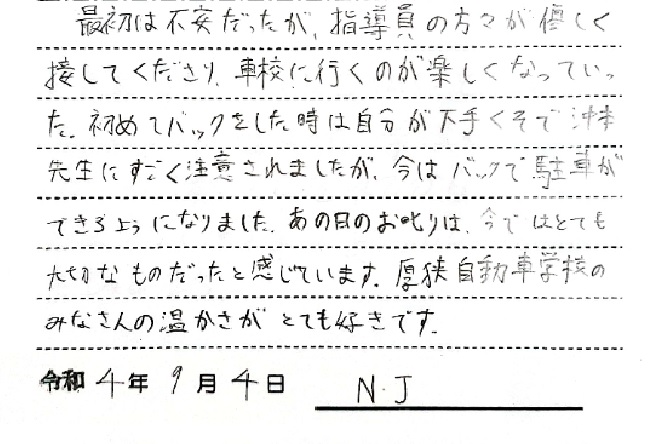 最初は不安だったが、指導員の方々が優しく
接してくださり、車校に行くのが楽しくなっていっ
た。初めてバックをした時は自分が下手くそで沖本
先生にすごく注意されましたが、今はバックで駐車が
できるようになりました。あの日のお叱りは、今ではとても
大切なものだったと感じています。厚狭自動車学校の
みなさんの温かさがとても好きです。
令和4年9月4日 N.J